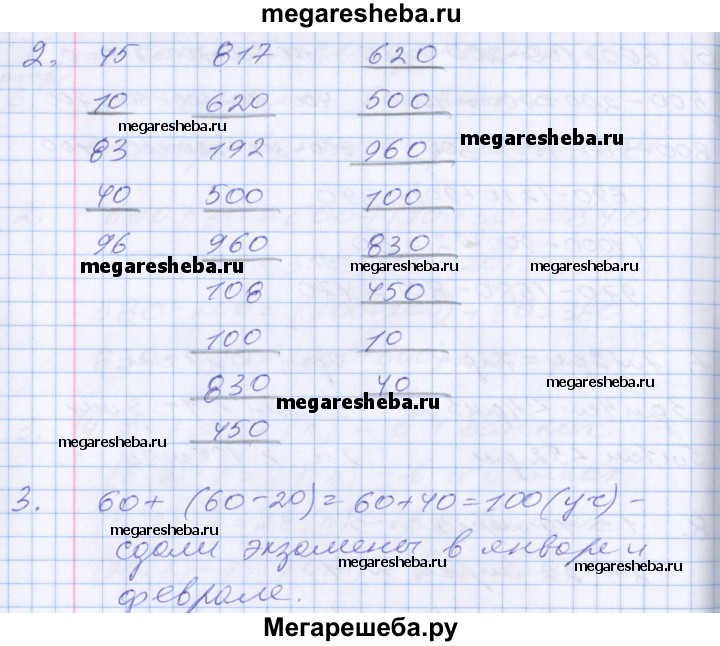 megaresheba.ru
2. 45 817 620
10 620 500
megaresheba.ru
megaresheba.ru
83 192 960
40 500 100
96 960 830
megaresheba.ru megaresheba.ru megaresheba.ru
108 450
100 10
830 40
megaresheba.ru
megaresheba.ru
450
megaresheba.ru
3. 60+ (60-20)=60+40=100(уч) -
megaresheba.ru
сдали экзамены в январе и
megaresheba.ru megaresheba.ru
феврале.
Мегарешеба.ру